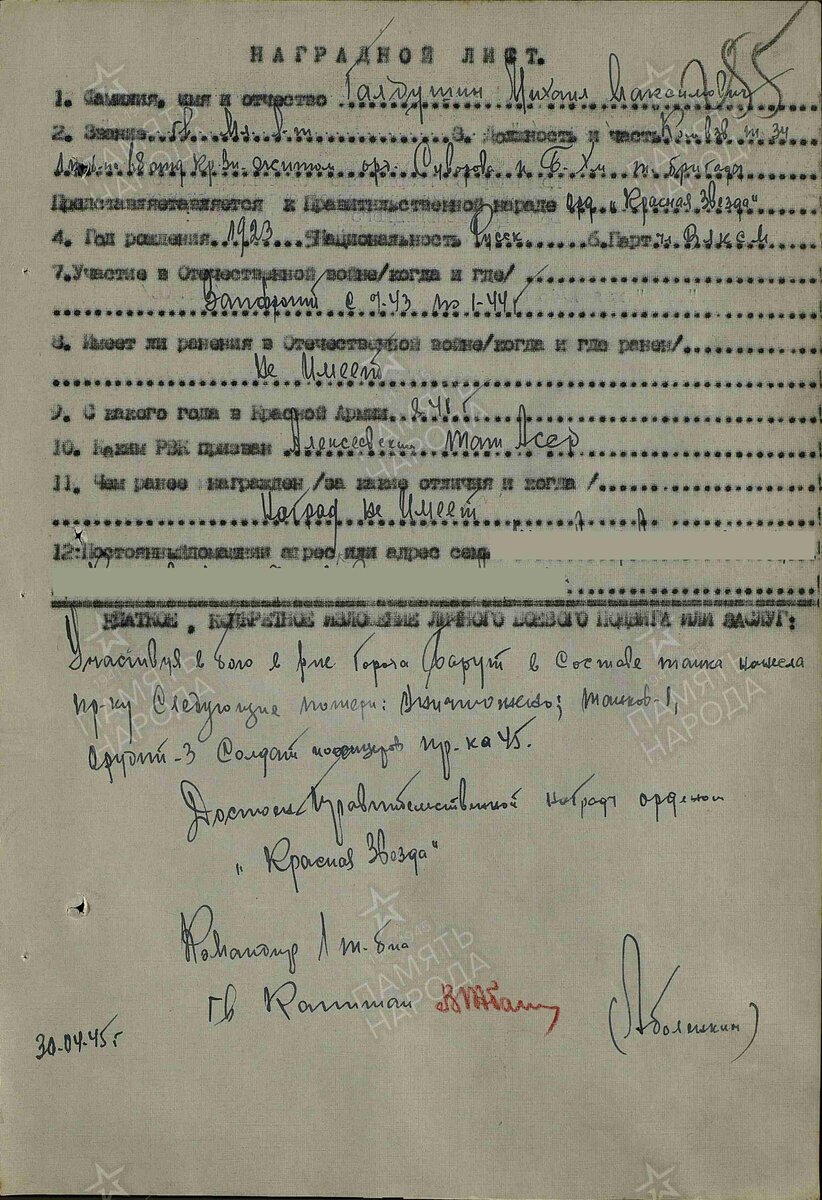 НАГРАДНОЙ ЛИСТ.
1. Фамилия, имя и отчество Галдушин Михаил Максимович
2. Звание гв. мл. л-т 3. Должность и часть Ком. взв. т-34
68 орд. Суворова и Б. Хм. т. бригады
Представляется к Правительственной награде орд. „Красная Звезда"
4. Год рождения 1923 5. Национальность Русск 6. Партия ВЛКСМ
7. Участие в Отечественной войне/когда и где/
Запфронт с 7-43 по 1-44г
8. Имеет ли ранения в Отечественной войне/когда и где ранен/
не имеет
9. С какого года в Красной Армии 41 г
10. Каким РВК призван Алексеевским ТатАССР
11. Чем ранее награжден /за какие отличия и когда /
Наград не имеет
12: Постоянный домашний адрес или адрес семь
КРАТКОЕ, КОНКРЕТНОЕ ИЗЛОЖЕНИЕ ЛИЧНОГО БОЕВОГО ПОДВИГА ИЛИ ЗАСЛУГ:
Участвуя в бою в р-не города Барут в составе танка нанесла
пр-ку следующие потери: Уничтожено: танков-1,
орудий-3 Солдат и офицеров пр-ка 45.
Достоен Правительственной награды орденом
„Красная Звезда"
Командир 1 т. б-на
гв Капитан (Аболенкин)
30-04-45г
ПАМЯТЬ НАРОДА